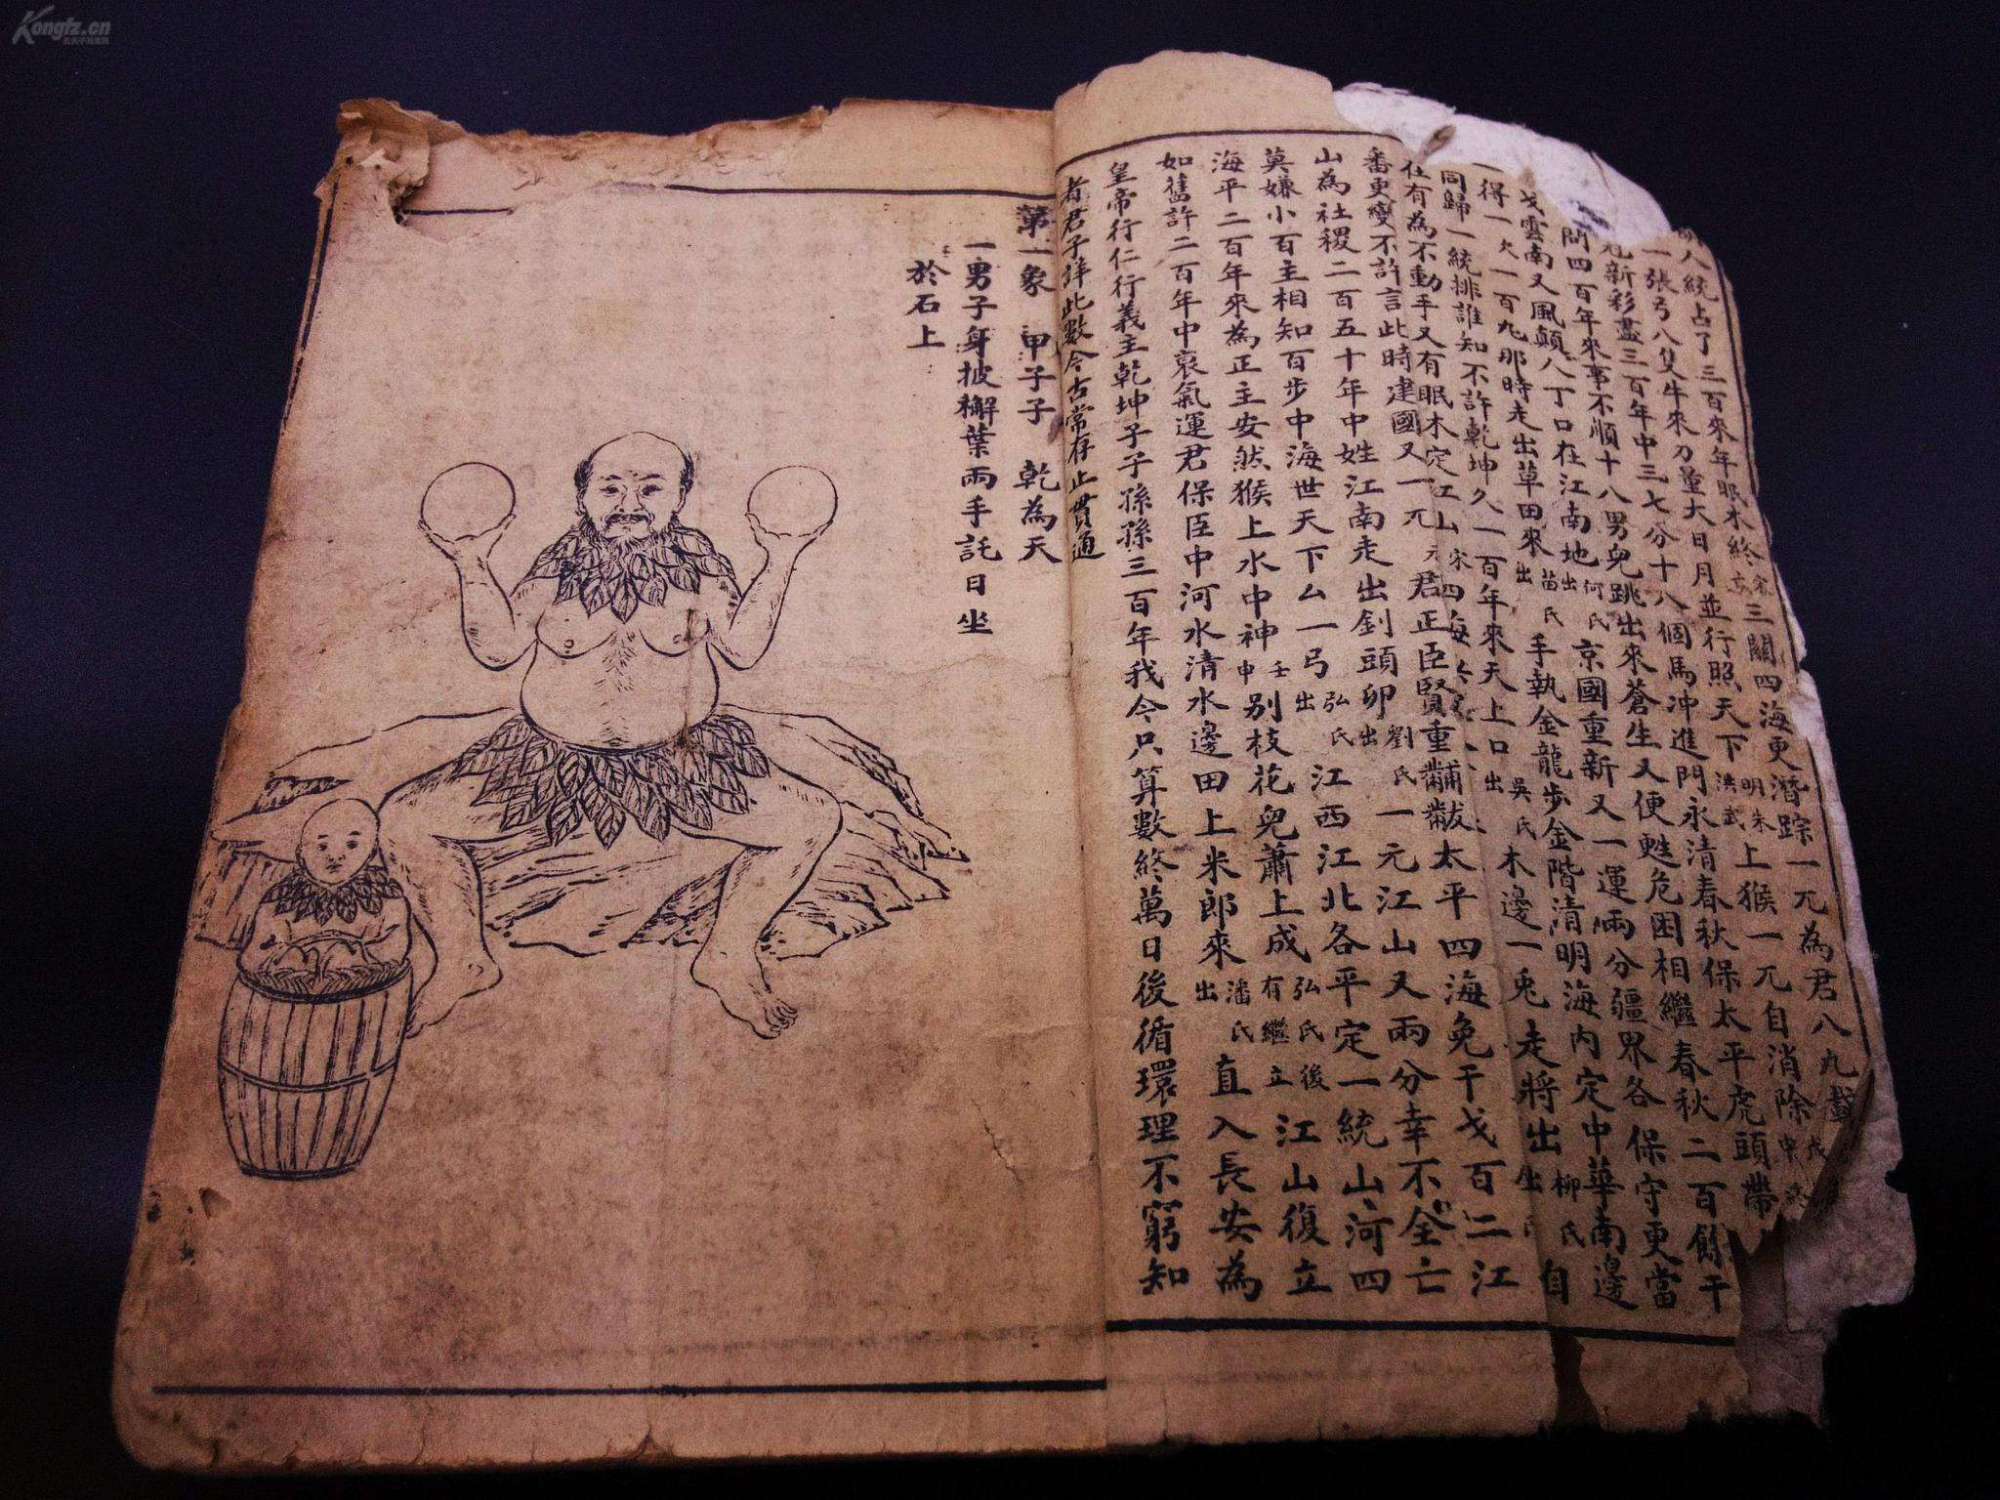 三關四海更潛踪一兀為君八九
八統占了三百來年眠木終
上猴一兀自消除
一張弓八隻牛來刀量大日月並行照天下
明朱
洪武
冠新彩盡三百年中三七分十八個馬冲進門永清春秋保太平虎頭帶
問四百年來事不順十八男兒跳出來蒼生又便甦危困相繼春秋二百餘干
戈雲南又風顛八丁口在江南地
何氏
出
京國重新又一運兩分疆界各保守更當
一得一欠一百九那時走出草田來
苗氏
出
手執金龍步金階清明海內定中華南邊
同歸一統排誰知不許乾坤久一百年來天上口
吳氏
出
木邊一兎走將出
柳氏
自
在有為不動手又有眠木定江山
宋
四海
太平四海免干戈百二江
番更變不許言此時建國又一兀
元
君正臣賢重黼黻
山為社稷二百五十年中姓江南走出釗頭卯
劉氏
出
一元江山又兩分幸不全亡
莫嫌小百主相知百步中海世天下厶一弓
弘氏
出
江西江北各平定一統山河四
海平二百年來為正主安然猴上水中神
壬
申
別枝花兒蕭上成
弘氏後
有繼立
江山復立
如舊許二百年中衰氣運君保臣中河水清水邊田上米郎來
潘氏
出
直入長安為
皇帝行仁行義主乾坤子子孫孫三百年我今只算數終萬日後循環理不窮知
者君子詳此數今古常存止貫通
第一象 甲子子 乾為天
一男子身披檞葉兩手託日坐
於石上
Kongfz.cn